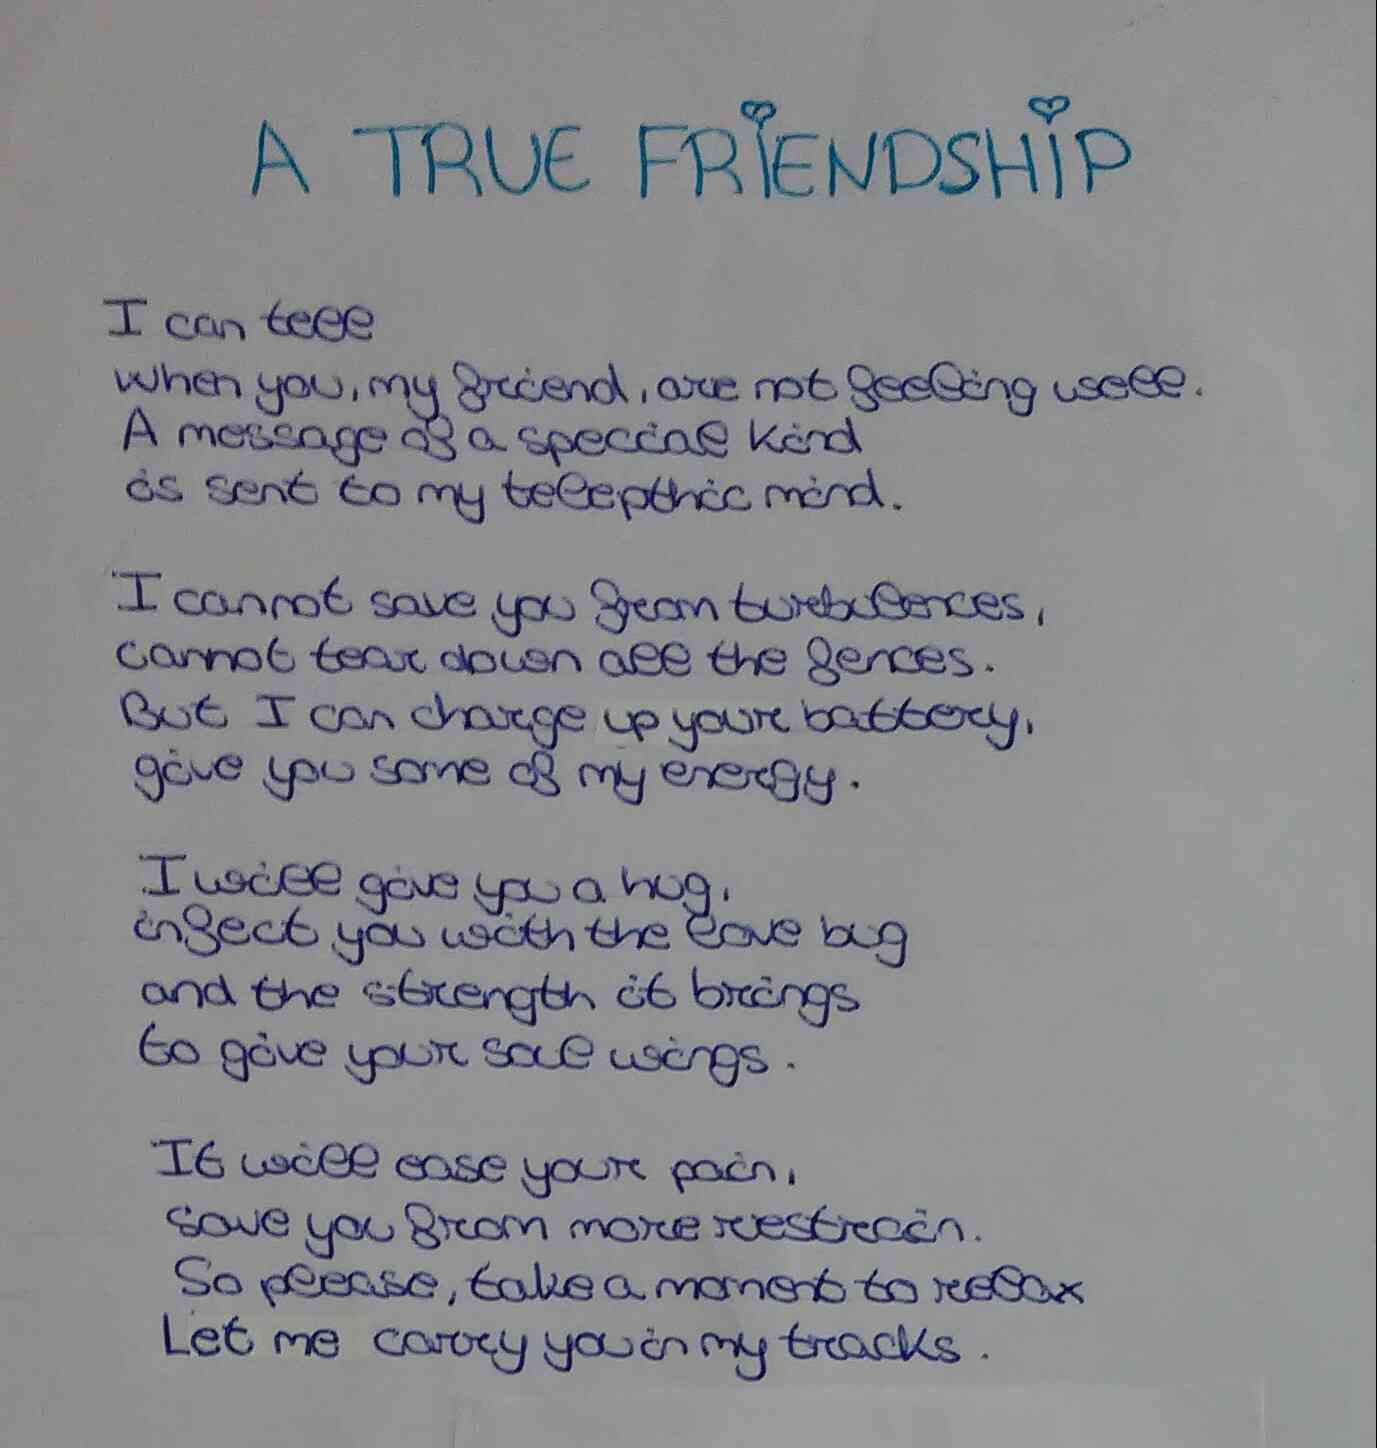 A TRUE FRIENDSHIP
I can tell
when you, my friend, are not feeling well.
A message of a special kind
is sent to my telepthic mind.
I cannot save you from turbulences,
cannot tear down all the fences.
But I can charge up your battery,
give you some of my energy.
I will give you a hug,
infect you with the love bug
and the strength it brings
to give your soul wings.
It will ease your pain,
save you from more restrain.
So please, take a moment to relax
Let me carry you in my tracks.